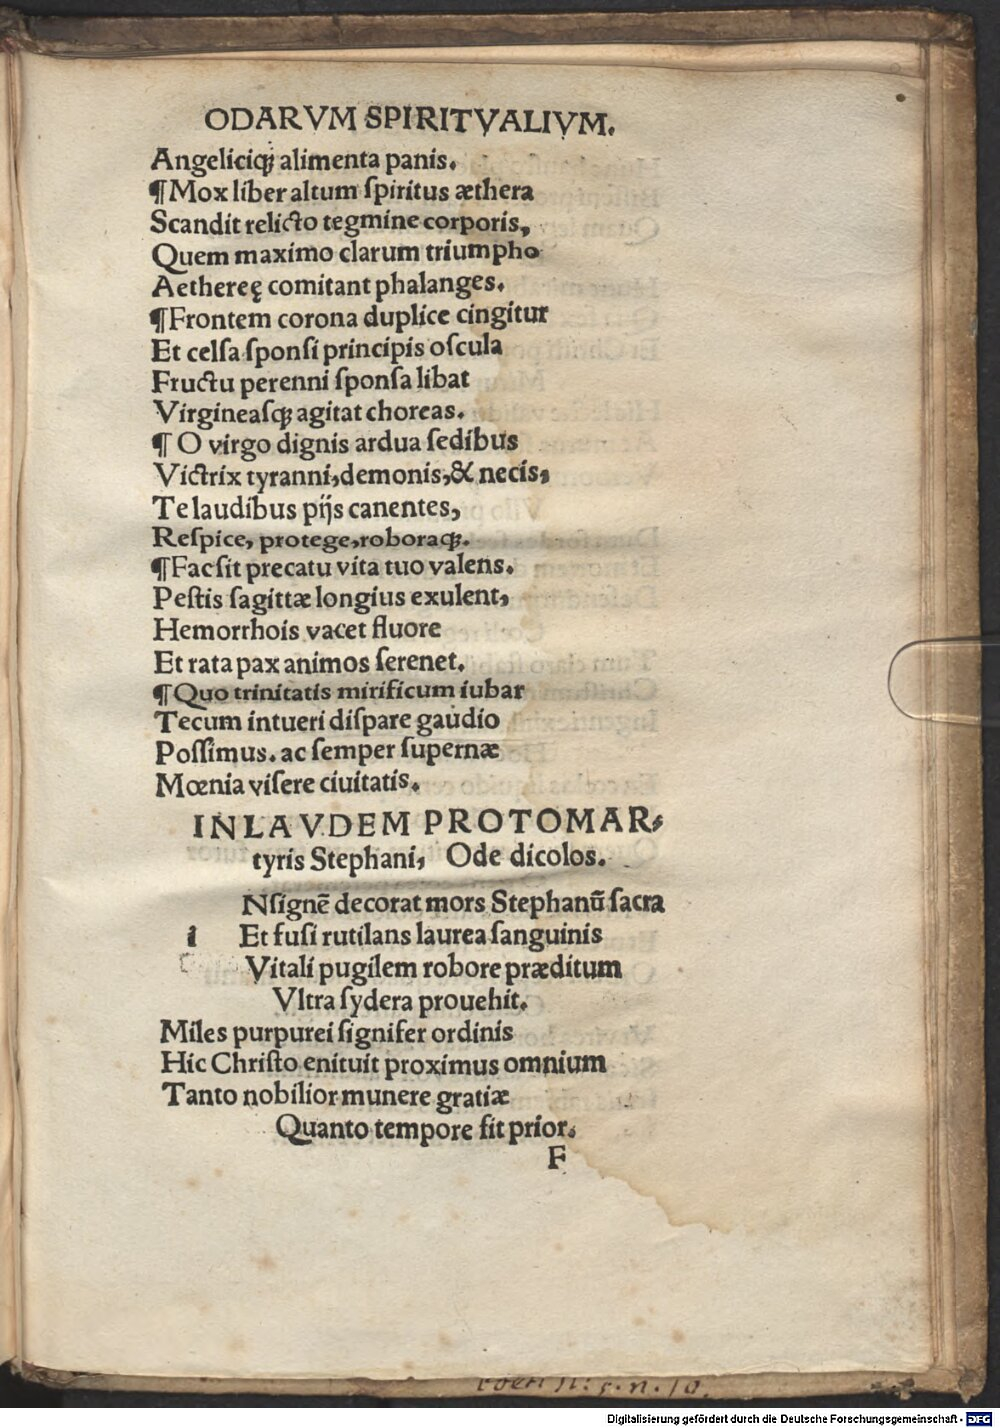 ODARVM SPIRITVALIVM.
Angeliciqꝫ alimenta panis.
¶Mox liber altum ſpiritus æthera
Scandit relicto tegmine corporis,
Quem maximo clarum triumpho
Aethereę comitant phalanges.
¶Frontem corona duplice cingitur
Et celſa ſponſi principis oſcula
Fructu perenni ſponſa libat
Virgineaſqꝫ agitat choreas.
¶ O virgo dignis ardua ſedibus
Victrix tyranni,demonis,& necis,
Te laudibus pijs canentes,
Reſpice, protege,roboraqꝫ.
¶Facſit precatu vita tuo valens.
Peſtis ſagittæ longius exulent,
Hemorrhois vacet fluore
Et rata pax animos ſerenet.
¶Quo trinitatis mirificum iubar
Tecum intueri diſpare gaudio
Poſſimus. ac ſemper ſupernæ
Mœnia viſere ciuitatis.
IN LAVDEM PROTOMAR-
tyris Stephani, Ode dicolos.
Nſignē decorat mors Stephanū ſacra
i Et fuſi rutilans laurea ſanguinis
Vitali pugilem robore præditum
Vltra ſydera prouehit.
Miles purpurei ſignifer ordinis
Hic Chriſto enituit proximus omnium
Tanto nobilior munere gratiæ
Quanto tempore fit prior.
F
Digitalisierung gefördert durch die Deutsche Forschungsgemeinschaft - DFG